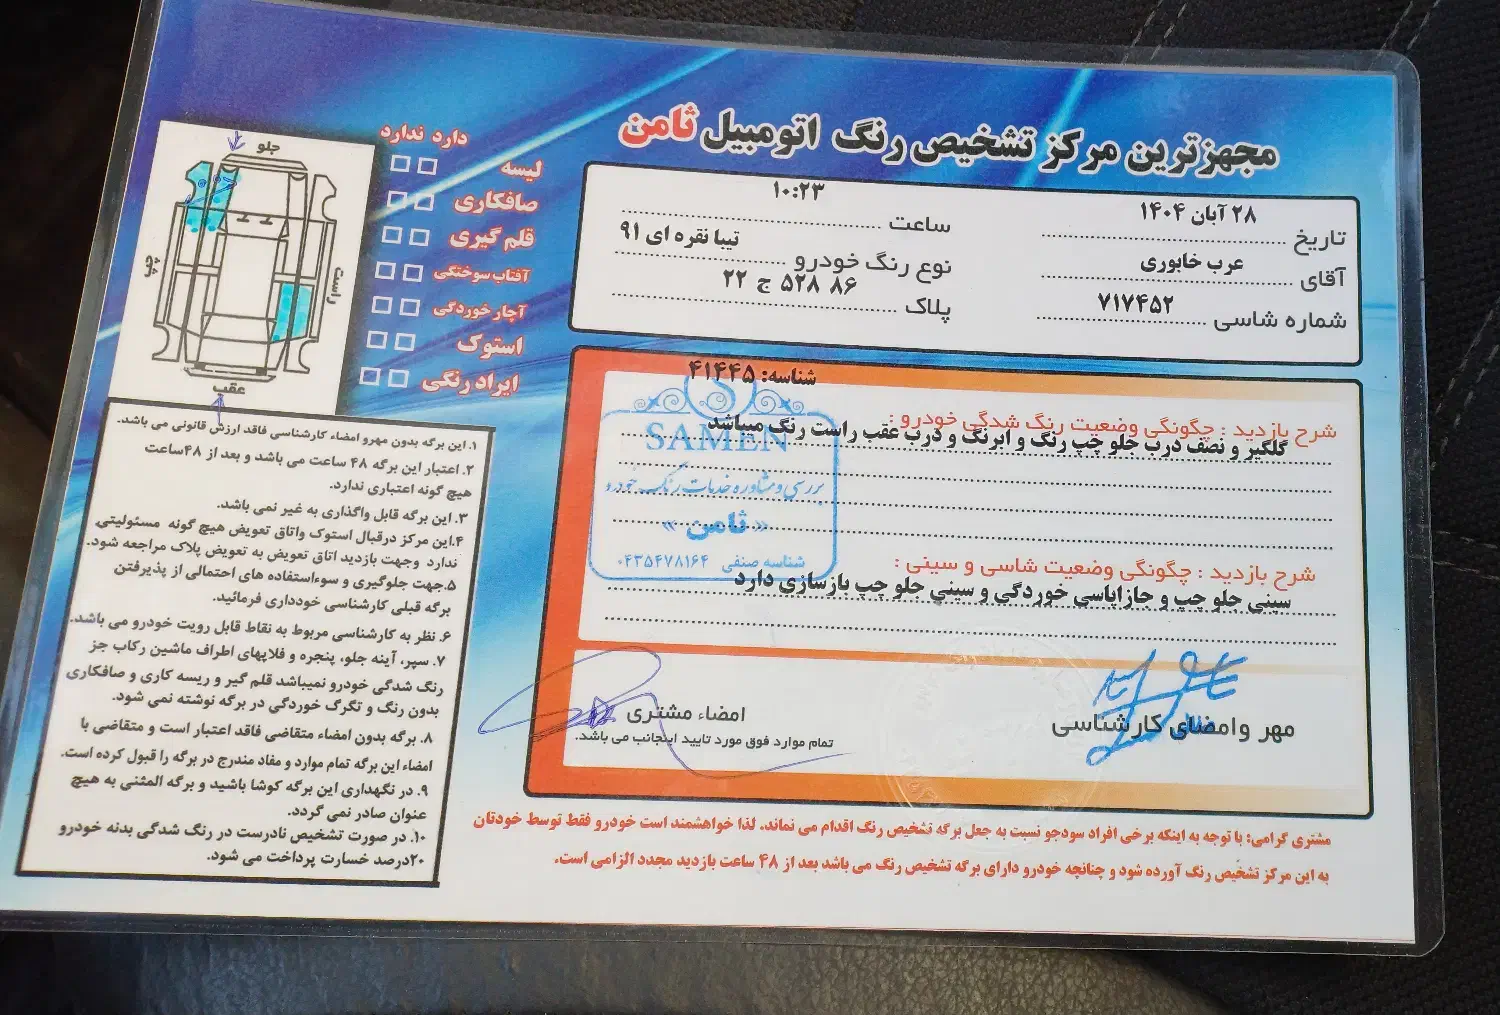 مجهزترین مرکز تشخیص رنگ اتومبیل ثامن
تاریخ ۲۸ آبان ۱۴۰۴
ساعت ۱۰:۲۳
آقای عرب خابوری
نوع رنگ خودرو تیبا نقره ای ۹۱
شماره شاسی ۷۱۷۴۵۲
پلاک ۸۶ ۵۲۸ ج ۲۲
شناسه: ۴۱۴۴۵
شرح بازدید : چگونگی وضعیت رنگ شدگی خودرو :
گلگیر و نصف درب جلو چپ رنگ و ابرنگ و درب عقب راست رنگ میباشد
SAMEN
بررسی و مشاوره خدمات رنگ خودرو
«ثامن»
شناسه صنفی ۰۴۳۵۴۷۸۱۶۴
شرح بازدید : چگونگی وضعیت شاسی و سینی :
سینی جلو چپ و جازاپاسی خوردگی و سینی جلو چپ بازسازی دارد
مهر وامضای کارشناسی
امضاء مشتری
تمام موارد فوق مورد تایید اینجانب می باشد.
مشتری گرامی: با توجه به اینکه برخی افراد سودجو نسبت به جعل برگه تشخیص رنگ اقدام می نماند. لذا خواهشمند است خودرو فقط توسط خودتان
به این مرکز تشخیص رنگ آورده شود و چنانچه خودرو دارای برگه تشخیص رنگ می باشد بعد از ۴۸ ساعت بازدید مجدد الزامی است.
دارد ندارد
لیسه
صافکاری
قلم گیری
آفتاب سوختگی
آچار خوردگی
استوک
ایراد رنگی
جلو
راست
چپ
عقب
۱. این برگه بدون مهرو امضاء کارشناسی فاقد ارزش قانونی می باشد.
۲. اعتبار این برگه ۴۸ ساعت می باشد و بعد از ۴۸ساعت
هیچ گونه اعتباری ندارد.
۳. این برگه قابل واگذاری به غیر نمی باشد.
۴.این مرکز درقبال استوک واتاق تعویض هیچ گونه مسئولیتی
ندارد وجهت بازدید اتاق تعویض به تعویض پلاک مراجعه شود.
۵.جهت جلوگیری و سوءاستفاده های احتمالی از پذیرفتن
برگه قبلی کارشناسی خودداری فرمائید.
۶. نظر به کارشناسی مربوط به نقاط قابل رویت خودرو می باشد.
۷. سپر، آینه جلو، پنجره و فلاپهای اطراف ماشین رکاب جز
رنگ شدگی خودرو نمیباشد قلم گیر و ریسه کاری و صافکاری
بدون رنگ و تگرگ خوردگی در برگه نوشته نمی شود.
۸. برگه بدون امضاء متقاضی فاقد اعتبار است و متقاضی با
امضاء این برگه تمام موارد و مفاد مندرج در برگه را قبول کرده است.
۹. در نگهداری این برگه کوشا باشید و برگه المثنی به هیچ
عنوان صادر نمی گردد.
۱۰. در صورت تشخیص نادرست در رنگ شدگی بدنه خودرو
۲۰درصد خسارت پرداخت می شود.